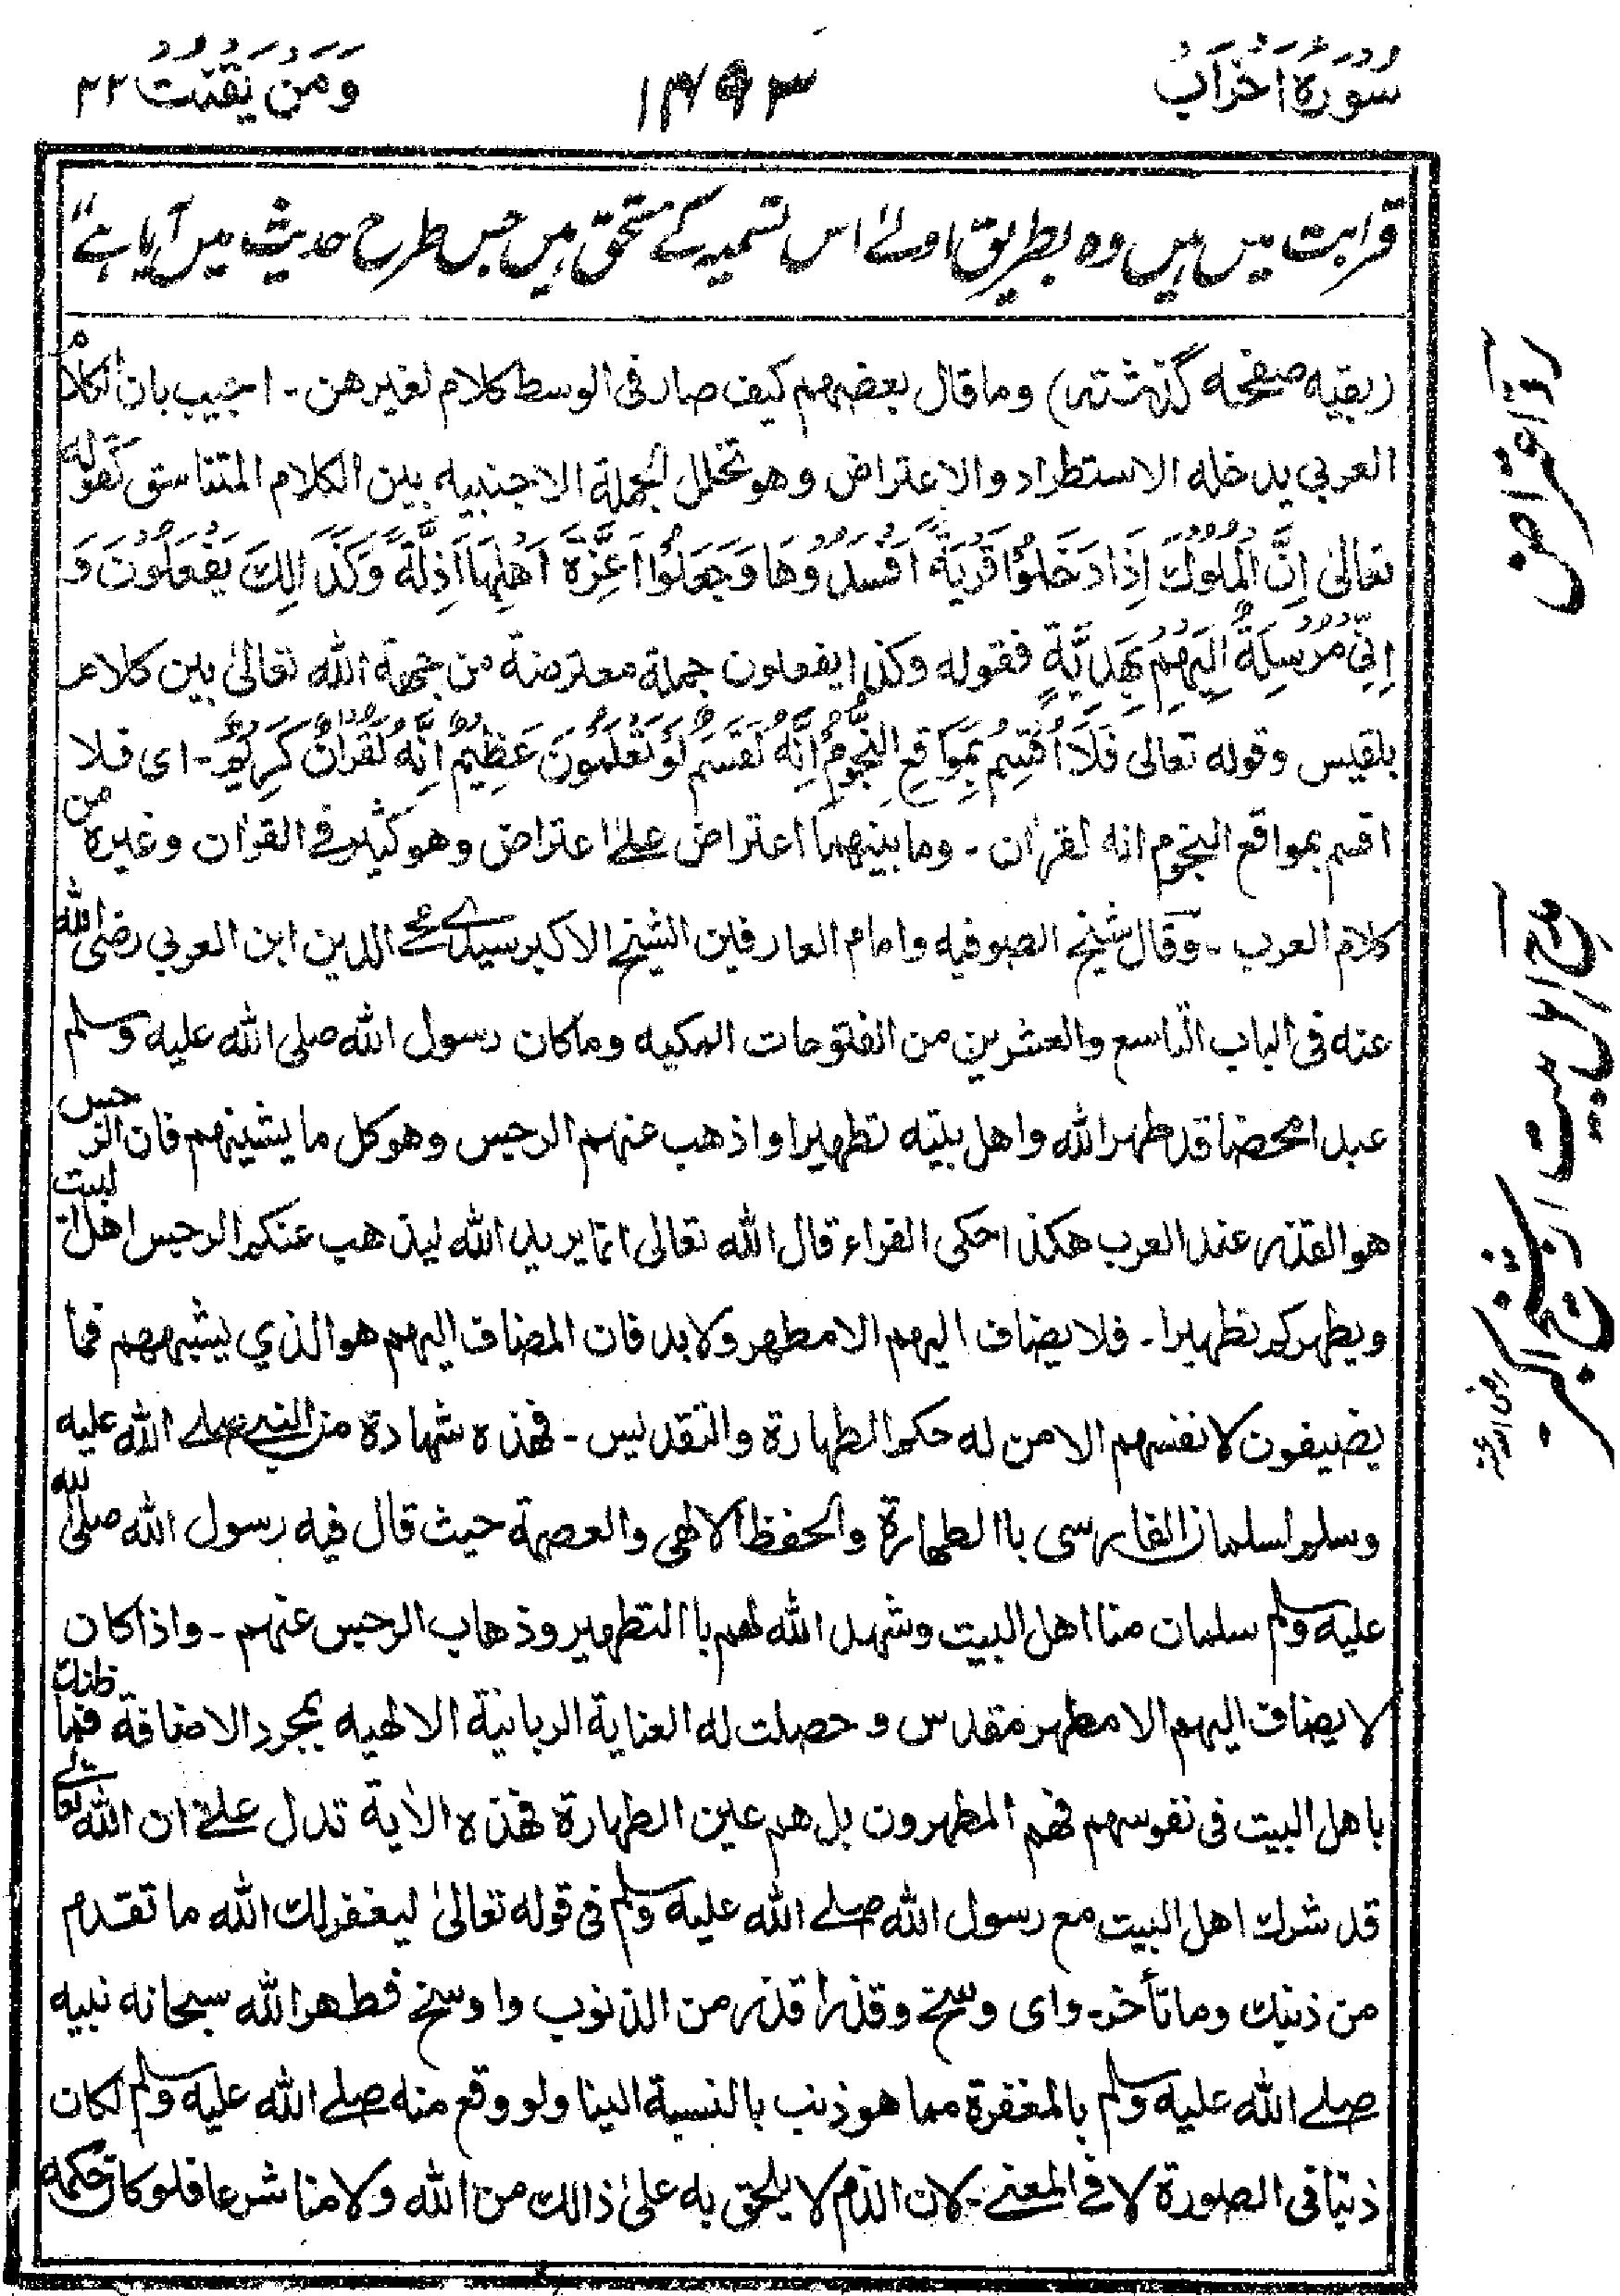 سُوْرَةُ اَحْزَابُ
۱۴۹۳
وَمَنْ يَقْنُتْ ۲۲
قرابت میں ہیں وہ بطریق اولےٰ اس تسمیہ کے مستحق ہیں جس طرح حدیث میں آیا ہے"
(بقیہ صفحہ گذشتہ) وما قال بعضہم کیف صار فی الوسط کلام لغیرھن ۔ اجیب بان الکلام
العربی یدخلہ الاستطراد والاعتراض وھو تخلل الجملة الاجنبیہ بین الکلام المتناسق کقولہ
تعالیٰ اِنَّ الْمُلُوْكَ اِذَا دَخَلُوْا قَرْيَةً اَفْسَدُوْهَا وَجَعَلُوْا اَعِزَّةَ اَهْلِهَا اَذِلَّةً وَكَذَالِكَ يَفْعَلُوْنَ وَ
اِنِّيْ مُرْسِلَةٌ اِلَيْهِمْ بِهَدِيَّةٍ فقولہ وکذا یفعلون جملة معترضة من جھة اللہ تعالیٰ بین کلام
بلقیس وقولہ تعالی فَلَا اُقْسِمُ بِمَوَاقِعِ النُّجُوْمِ اِنَّهٗ لَقَسَمٌ لَوْ تَعْلَمُوْنَ عَظِيْمٌ اِنَّهٗ لَقُرْاٰنٌ كَرِيْمٌ ۔ ای فلا
اقسم بمواقع النجوم انہ لقرآن ۔ وما بینھما اعتراض علےٰ اعتراض وھو کثیر فی القرآن وغیرہ من
کلام العرب ۔ وقال شیخ الصوفیہ وامام العارفین الشیخ الاکبر سیدی محی الدین ابن العربی رضی اللہ
عنہ فی الباب التاسع والعشرین من الفتوحات المکیہ وما کان رسول اللہ صلی اللہ علیہ وسلم
عبدا محضا قد طھر اللہ واھل بیتہ تطھیرا واذھب عنھم الرجس وھو کل ما یشینھم فان الرجس
ھو القذر عند العرب ھکذا حکی الفراء قال اللہ تعالی انما یرید اللہ لیذھب عنکم الرجس اھل البیت
ویطھرکم تطھیرا ۔ فلا یضاف الیھم الا مطھر ولا بد فان المضاف الیھم ھو الذی یشبھھم فما
یضیفون لانفسھم الا من لہ حکم الطھارة والتقدیس ۔ فھذہ شھادة من النبی صلے اللہ علیہ
وسلم لسلمان الفارسی باالطھارة والحفظ الالھی والعصمة حیث قال فیہ رسول اللہ صلی اللہ
علیہ وسلم سلمان منا اھل البیت وشھد اللہ لھم باالتطھیر وذھاب الرجس عنھم ۔ واذا کان
لا یضاف الیھم الا مطھر مقدس وحصلت لہ العنایة الربانیة الالھیہ بمجرد الاضافة فما ظنك
باھل البیت فی نفوسھم فھم المطھرون بل ھم عین الطھارة فھذہ الاٰیة تدل علےٰ ان اللہ تعالےٰ
قد شرك اھل البیت مع رسول اللہ صلے اللہ علیہ وسلم فی قولہ تعالیٰ لیغفر لك اللہ ما تقدم
من ذنبك وما تأخر ۔ وای وسخ وقذر اقذر من الذنوب واوسخ فطھر اللہ سبحانہ نبیہ
صلے اللہ علیہ وسلم بالمغفرة مما ھو ذنب بالنسبة الینا ولو وقع منہ صلے اللہ علیہ وسلم لکان
ذنبا فی الصورة لا فی المعنے ۔ لان الذم لا یلحق بہ علیٰ ذالك من اللہ ولا منا شرعا فلو کان حکمہ
ردّ اعتراض
مدح اہل بیت از شیخ اکبر
رضی اللہ عنہ